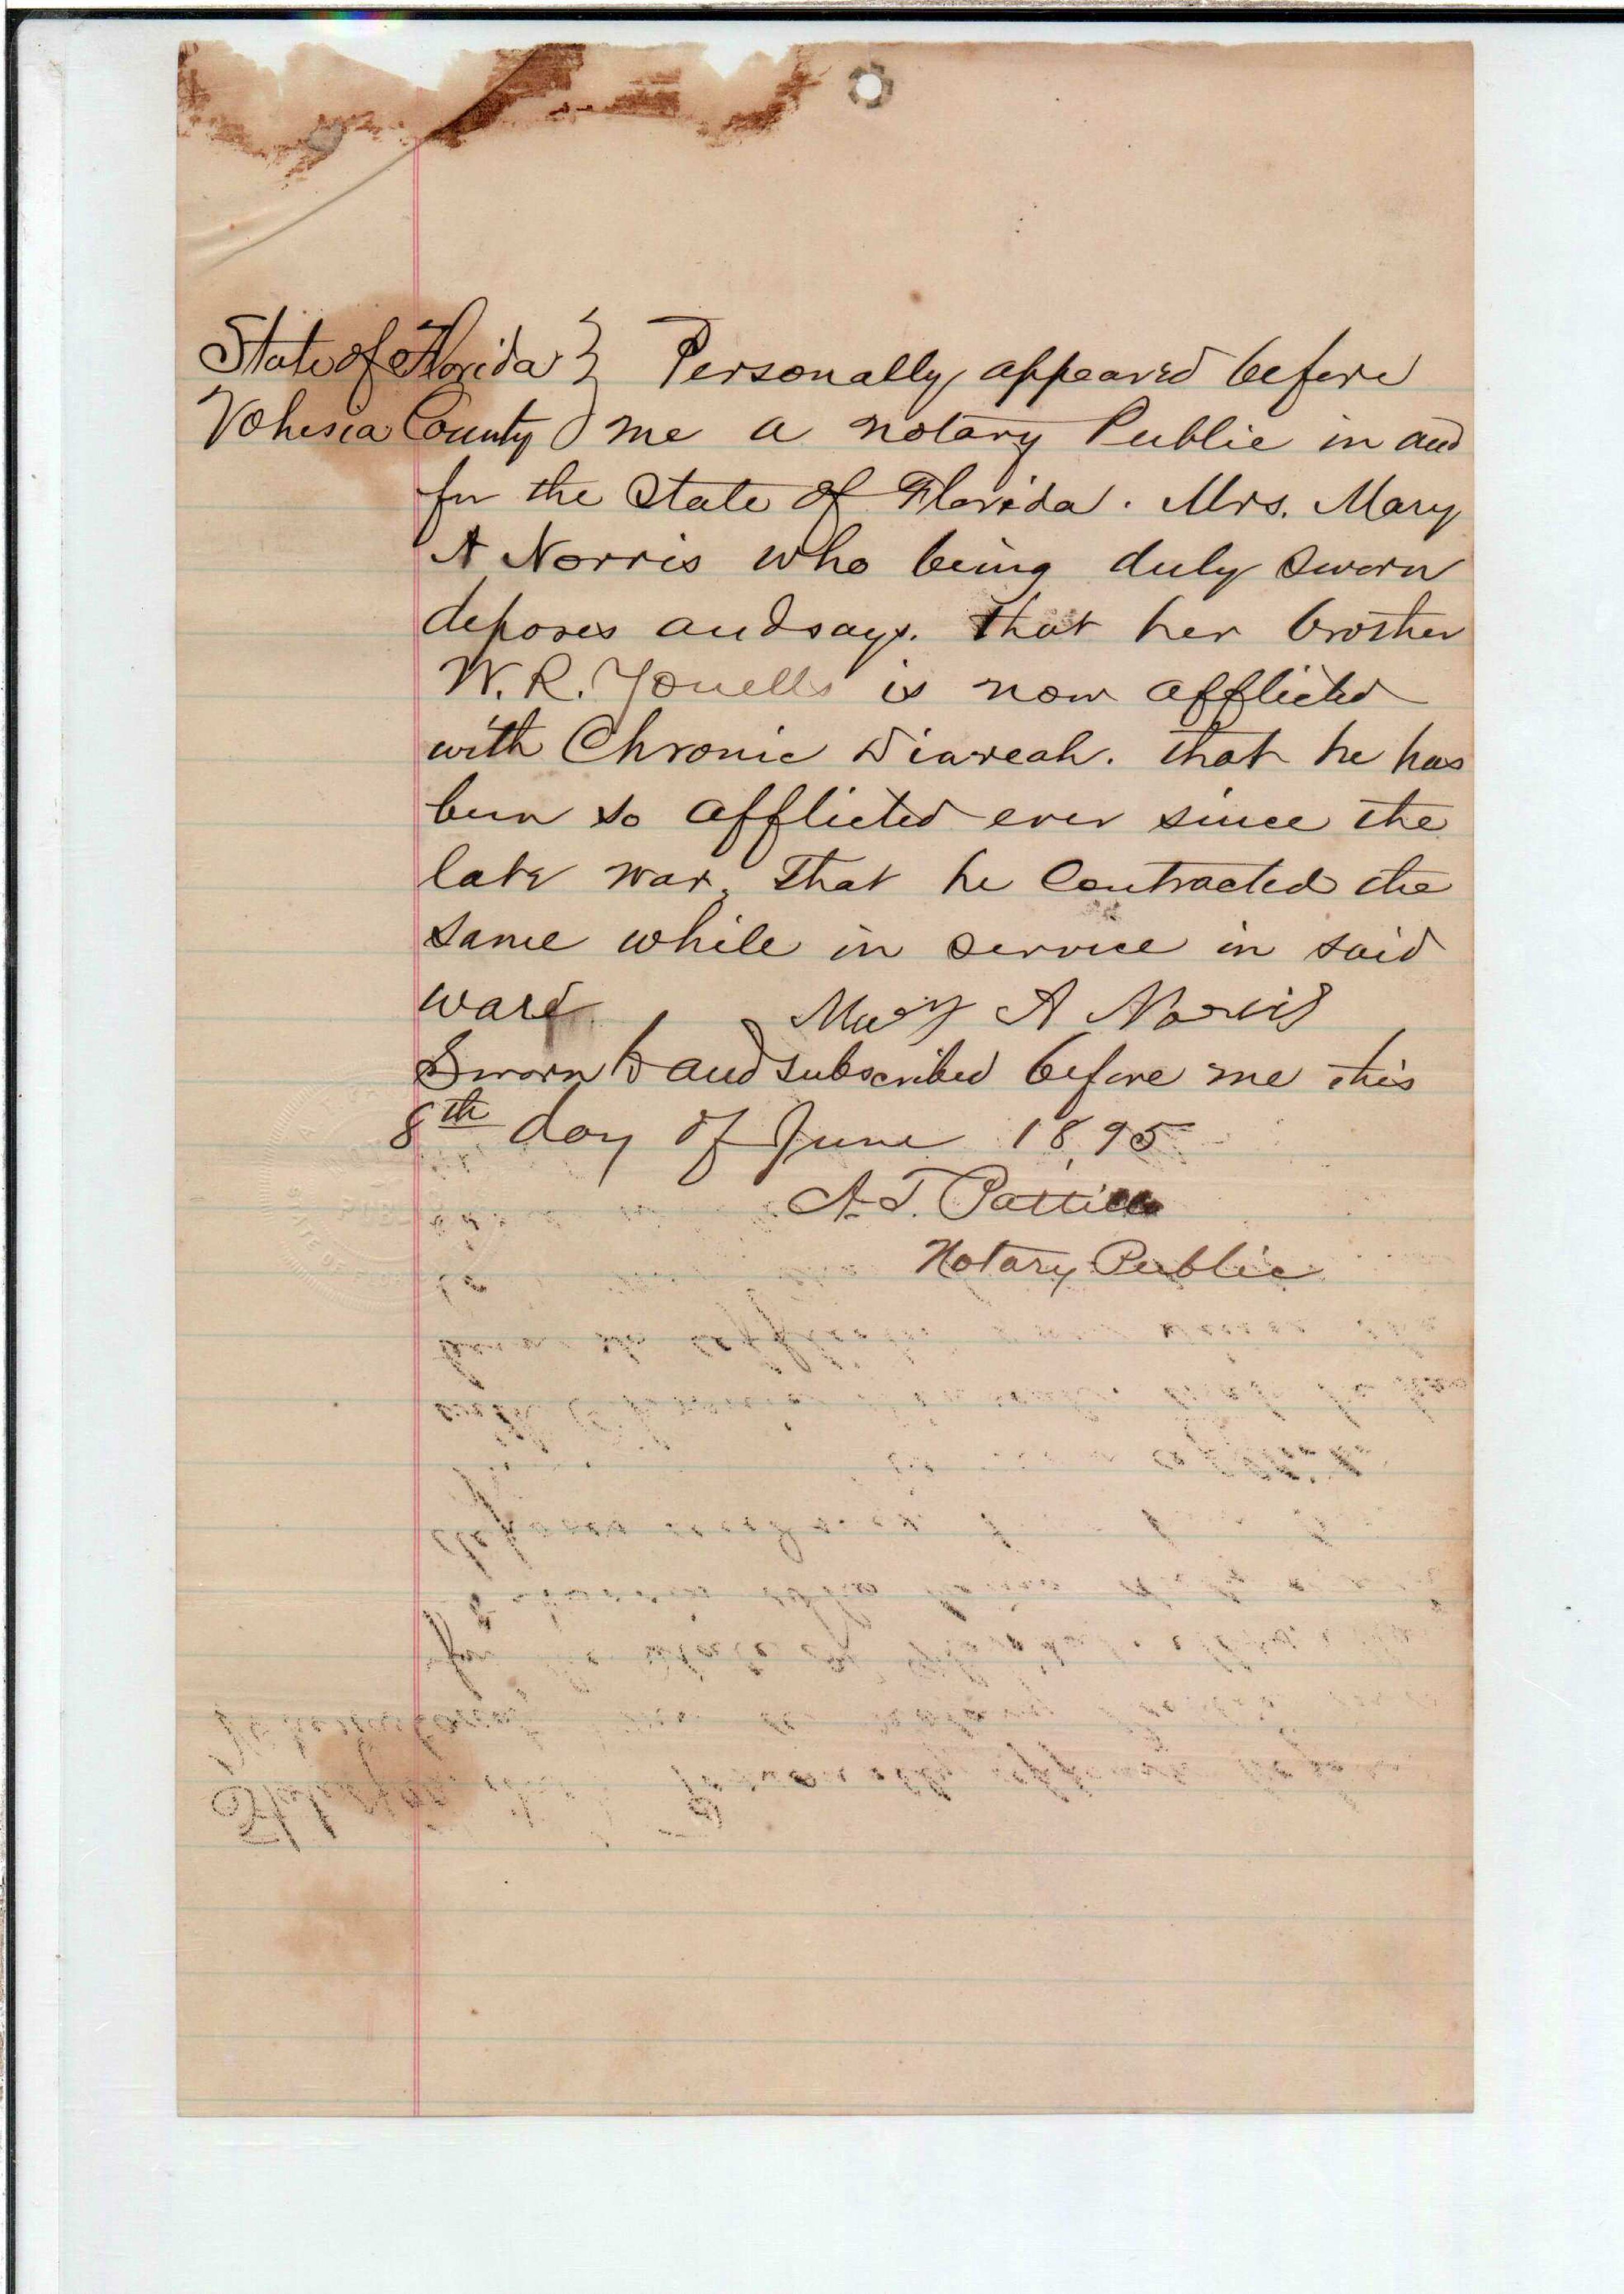 State of Florida } Personally appeared before
Volusia County } me a notary Public in and
for the State of Florida. Mrs. Mary
A Norris who being duly sworn
deposes and says. that her brother
W. R. Yonells is now afflicted
with Chronic Diareah. that he has
been so afflicted ever since the
late war, That he Contracted the
same while in service in said
ward
Mary A Norris
Sworn to and subscribed before me this
8th day of June 1895
A. T. Pattillo
Notary Public